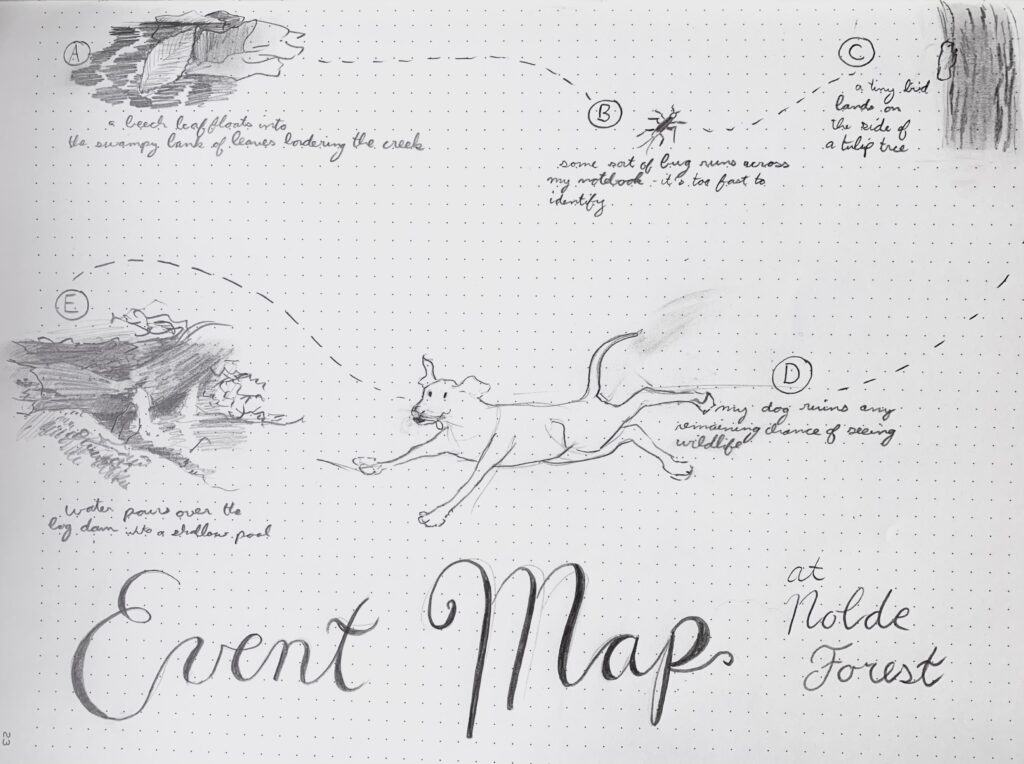 A
a beech leaf floats into
the swampy bank of leaves bordering the creek
B
some sort of bug runs across
my notebook - it's too fast to
identify
C
a tiny bird
lands on
the side of
a tulip tree
D
my dog ruins any
remaining chance of seeing
wildlife
E
water pours over the
log dam into a shallow pool
Event Map
at
Nolde
Forest
23